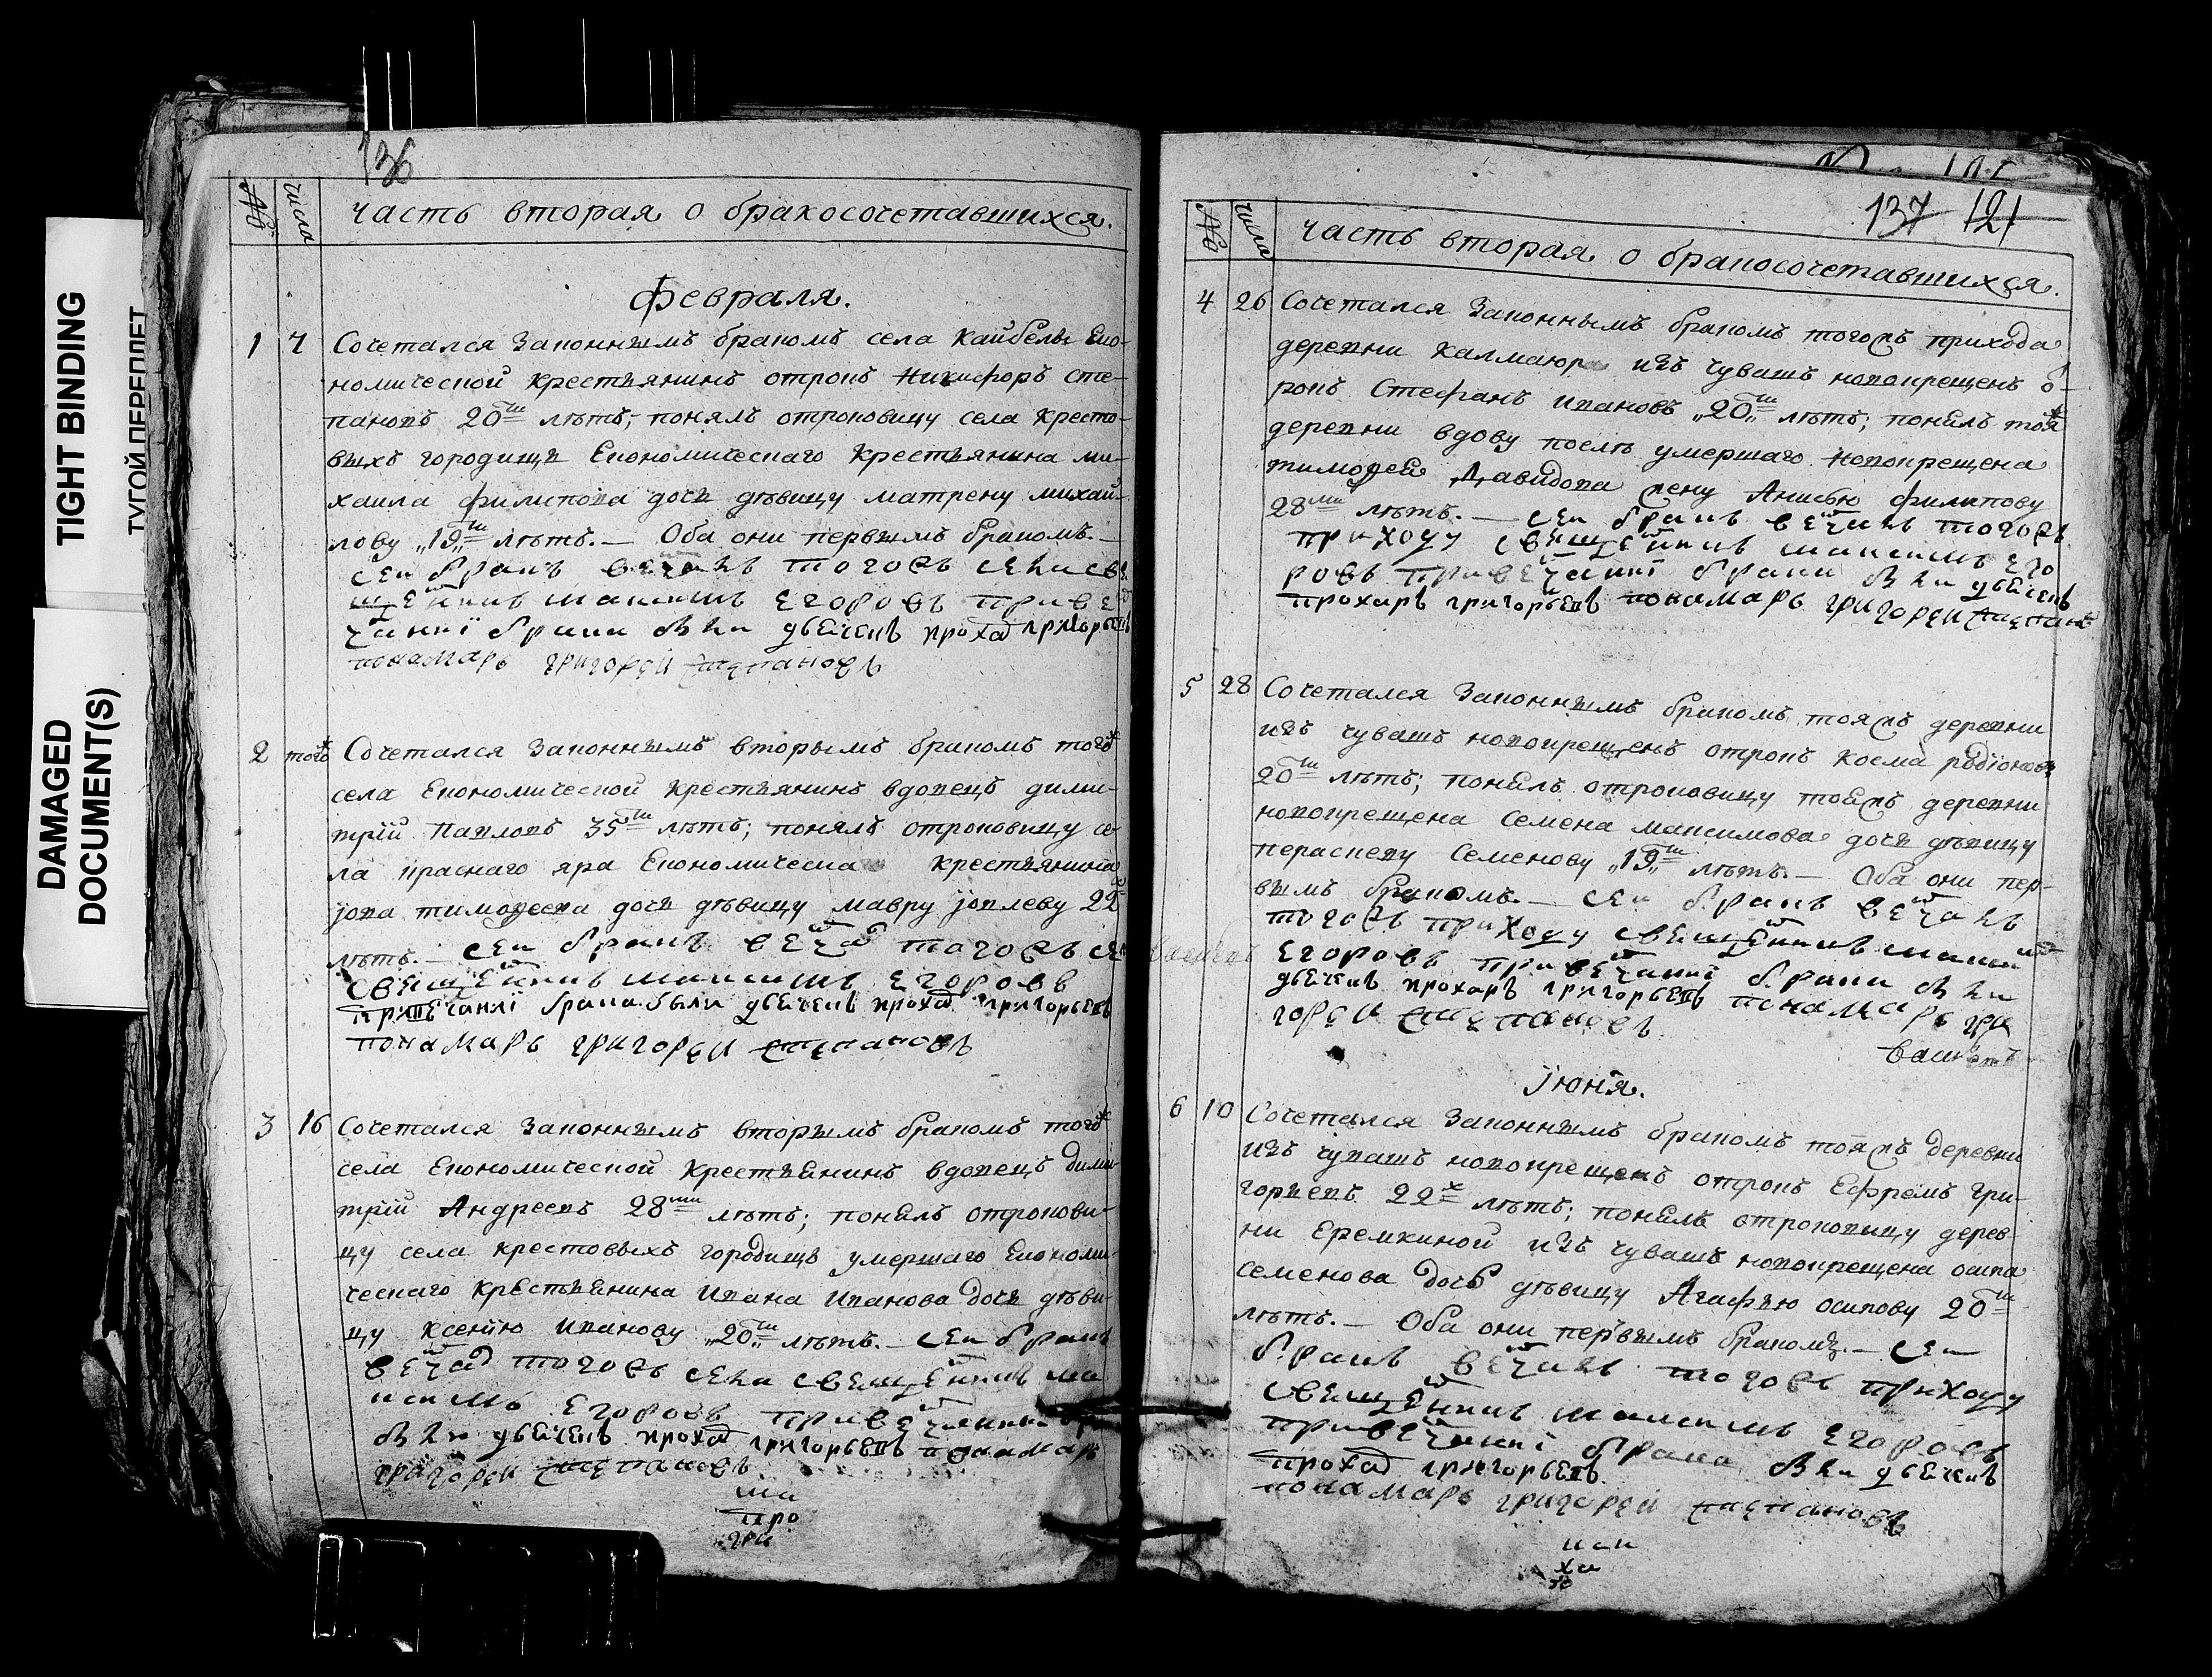 TIGHT BINDING
ТУГОЙ ПЕРЕПЛЕТ
DAMAGED
DOCUMENT(S)
136
№ числа часть вторая о бракосочетавшихся.
Февраля.
1 Сочетался законнымъ бракомъ села Кайбелъ Еко-
номической крестьянинъ отрокъ Никифоръ Сте-
пановъ 20ти лѣтъ; понялъ отроковицу села Кресто-
выхъ городищь Економическаго крестьянина Ми-
хаила Филипова дочь дѣвицу Матрену Михай-
лову „19„ти лѣтъ. — Оба они первымъ бракомъ. —
сеи бракъ венчалъ тогожъ села све
щенникъ максимъ егоровъ при вен
чанкi брака были дьячекъ прохор григорьевъ
понамарь григореи степановъ
2 тогож Сочетался законнымъ вторымъ бракомъ тогож
села Економической крестьянинъ вдовецъ Дими-
трій Павловъ 35ти лѣтъ; понялъ отроковицу се-
ла Краснаго яра Економическа крестьянина
Iова Тимоѳеева дочь дѣвицу Мавру Iовлеву 22х
лѣтъ. — сеи бракъ венчал тогожъ се
свещенникъ максимъ егоровъ
привечанкi брака были дьячекъ прохор григорьевъ
понамарь григореи степановъ
3 16 Сочетался законнымъ вторымъ бракомъ тогож
села Економической крестьянинъ вдовецъ Дими-
трій Андреевъ 28ми лѣтъ; понялъ отрокови-
цу села Крестовыхъ городищь умершаго Економи-
ческаго крестьянина Ивана Иванова дочь дѣви-
цу Ксенію Иванову „20„ти лѣтъ. — сеи бракъ
венчал тогожъ села свещенникъ ма
ксимъ егоровъ при венчанки
были дьячекъ прохор григорьевъ понамарь
григореи степановъ
ма
про
гри
137 121
№ числа часть вторая о бракосочетавшихся.
4 26 Сочетался законнымъ бракомъ тогожъ прихода
деревни Калмаюра изъ чувашъ новокрещенъ о-
рокъ Стефанъ Ивановъ „20„ти лѣтъ; понялъ тояж
деревни вдову послѣ умершаго новокрещена
Тимоѳея Давидова жену Анисью Филипову
28ми лѣтъ. — сеи бракъ венчалъ тогожъ
приходу свещенникъ максимъ его
ровъ при венчанкi брака были дьячекъ
прохаръ григорьевъ понамарь григореи степановъ
5 28 Сочетался законнымъ бракомъ тояжъ деревни
изъ чувашъ новокрещенъ отрокъ Косма Родiоновъ
20ти лѣтъ; понялъ отроковицу тояжъ деревни
новокрещена Семена Максимова дочь дѣвицу
Параскеву Семенову „19„ти лѣтъ. — Оба они пер-
вымъ бракомъ. — сеи бракъ венчалъ
тогожъ приходу свещенникъ максим
егоровъ при венчанкi брака были
дьячекъ прохаръ григорьевъ понамарь гри
гореи степановъ
Iюнiя.
6 10 Сочетался законнымъ бракомъ тояжъ деревни
изъ чувашъ новокрещенъ отрокъ Ефремъ Гри-
горьевъ 22х лѣтъ; понялъ отроковицу дерев-
ни Еремкиной изъ чувашъ новокрещена Осипа
Семенова дочь дѣвицу Агафью Осипову 20ти
лѣтъ. — Оба они первымъ бракомъ. — сеи
бракъ венчалъ тогожъ приходу
свещенникъ максимъ егоровъ
при венчанкi брака были дьячекъ
прохор григорьевъ
понамарь григореи степановъ
кси
ха